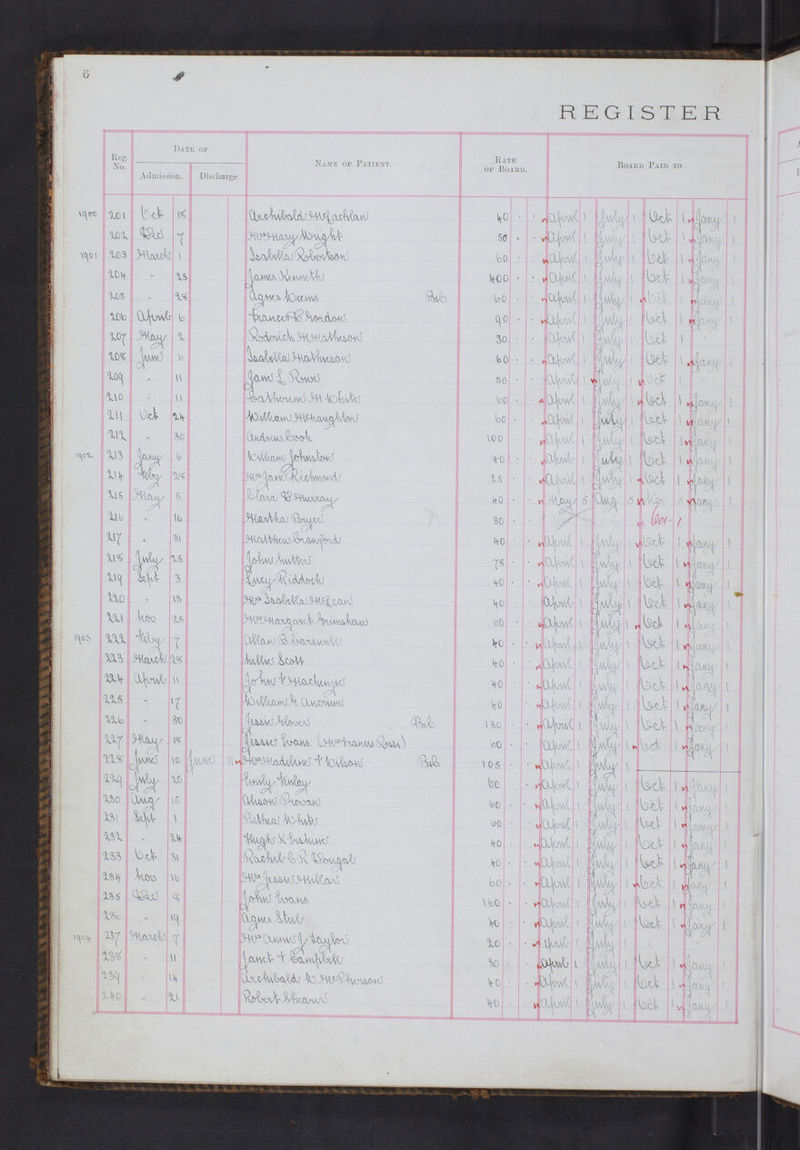 6
REGISTER
Reg. No. Date of Name of Patient. Rate of Board. Board Paid to
Admission. Discharge.
1900 201 Oct 18 Archibald McLachlan 40 April 1 July 1 Oct 1 Jany 1
202 Dec 7 Mrs Mary Wright 50 April 1 July 1 Oct 1 Jany 1
1901 203 March 1 Isabella Robertson 60 April 1 July 1 Oct 1 Jany 1
204 " 25 James Kenneth 400 April 1 July 1 Oct 1 Jany 1
205 " 28 Agnes Weems 60 April 1 July 1 Oct 1 Jany 1
206 April 6 Frances Gordon 90 April 1 July 1 Oct 1 Jany 1
207 May 2 Roderick M Mathieson 30 April 1 July 1 Oct 1
208 June 6 Isabella Mathieson 60 April 1 July 1 Oct 1 Jany 1
209 " 11 Jane L Rowe 50 April 1 July 1 Oct 1
210 " 11 Catherine M White 60 April 1 July 1 Oct 1 Jany 1
211 Oct 24 William McNaughton 60 April 1 July 1 Oct 1 Jany 1
212 " 30 Andrew Cook 100 April 1 July 1 Oct 1 Jany 1
1902 213 Jany 6 William Johnston 40 April 1 July 1 Oct 1 Jany 1
214 Feby 28 Mrs Jane Richmond 25 April 1 July 1 Oct 1 Jany 1
215 May 5 Clara E Murray 40 May 5 Aug 5 Nov 5 Jany 1
216 " 16 Martha Bryce 30 Oct 1
217 " 21 Matthew Crawford 40 April 1 July 1 Oct 1 Jany 1
218 July 25 John 75 April 1 July 1 Oct 1 Jany 1
219 Sept 3 Lucy Riddoch 40 April 1 July 1 Oct 1 Jany 1
220 " 18 Mrs Isabella McLean 40 April 1 July 1 Oct 1 Jany 1
221 Nov 28 Mrs Margaret Grimshaw 60 April 1 July 1 Oct 1 Jany 1
1903 222 Feby 7 Allan B Carswell 40 April 1 July 1 Oct 1 Jany 1
223 March 28 Nellie Scott 40 April 1 July 1 Oct 1 Jany 1
224 April 11 John F Mackenzie 40 April 1 July 1 Oct 1 Jany 1
225 " 17 William G 40 April 1 July 1 Oct 1 Jany 1
226 " 30 Jessie Glover 130 April 1 July 1 Oct 1 Jany 1
227 May 18 Jessie Evans (Mrs Frances Ross) 60 April 1 July 1 Oct 1 Jany 1
228 June 10 June 11 Mrs Madeline F Wilson 105 April 1 July 1
229 July 20 Emily Finlay 60 April 1 July 1 Oct 1 Jany 1
230 Aug 15 Alison Provan 60 April 1 July 1 Oct 1 Jany 1
231 Sept 1 Bethia White 60 April 1 July 1 Oct 1 Jany 1
232 " 24 Hugh K Erskine 40 April 1 July 1 Oct 1 Jany 1
233 Oct 31 Rachel C R Dougal 40 April 1 July 1 Oct 1 Jany 1
234 Nov 16 Mrs Jessie Millar 60 April 1 July 1 Oct 1 Jany 1
235 Dec 8 John Evans 160 April 1 July 1 Oct 1 Jany 1
236 " 19 Agnes 40 April 1 July 1 Oct 1 Jany 1
1904 237 March 7 Mrs Annie J Taylor 20 April 1 July 1
238 " 11 Janet F Campbell 30 April 1 July 1 Oct 1 Jany 1
239 " 14 Archibald W McPherson 40 April 1 July 1 Oct 1 Jany 1
240 " 21 Robert Shaw 40 April 1 July 1 Oct 1 Jany 1